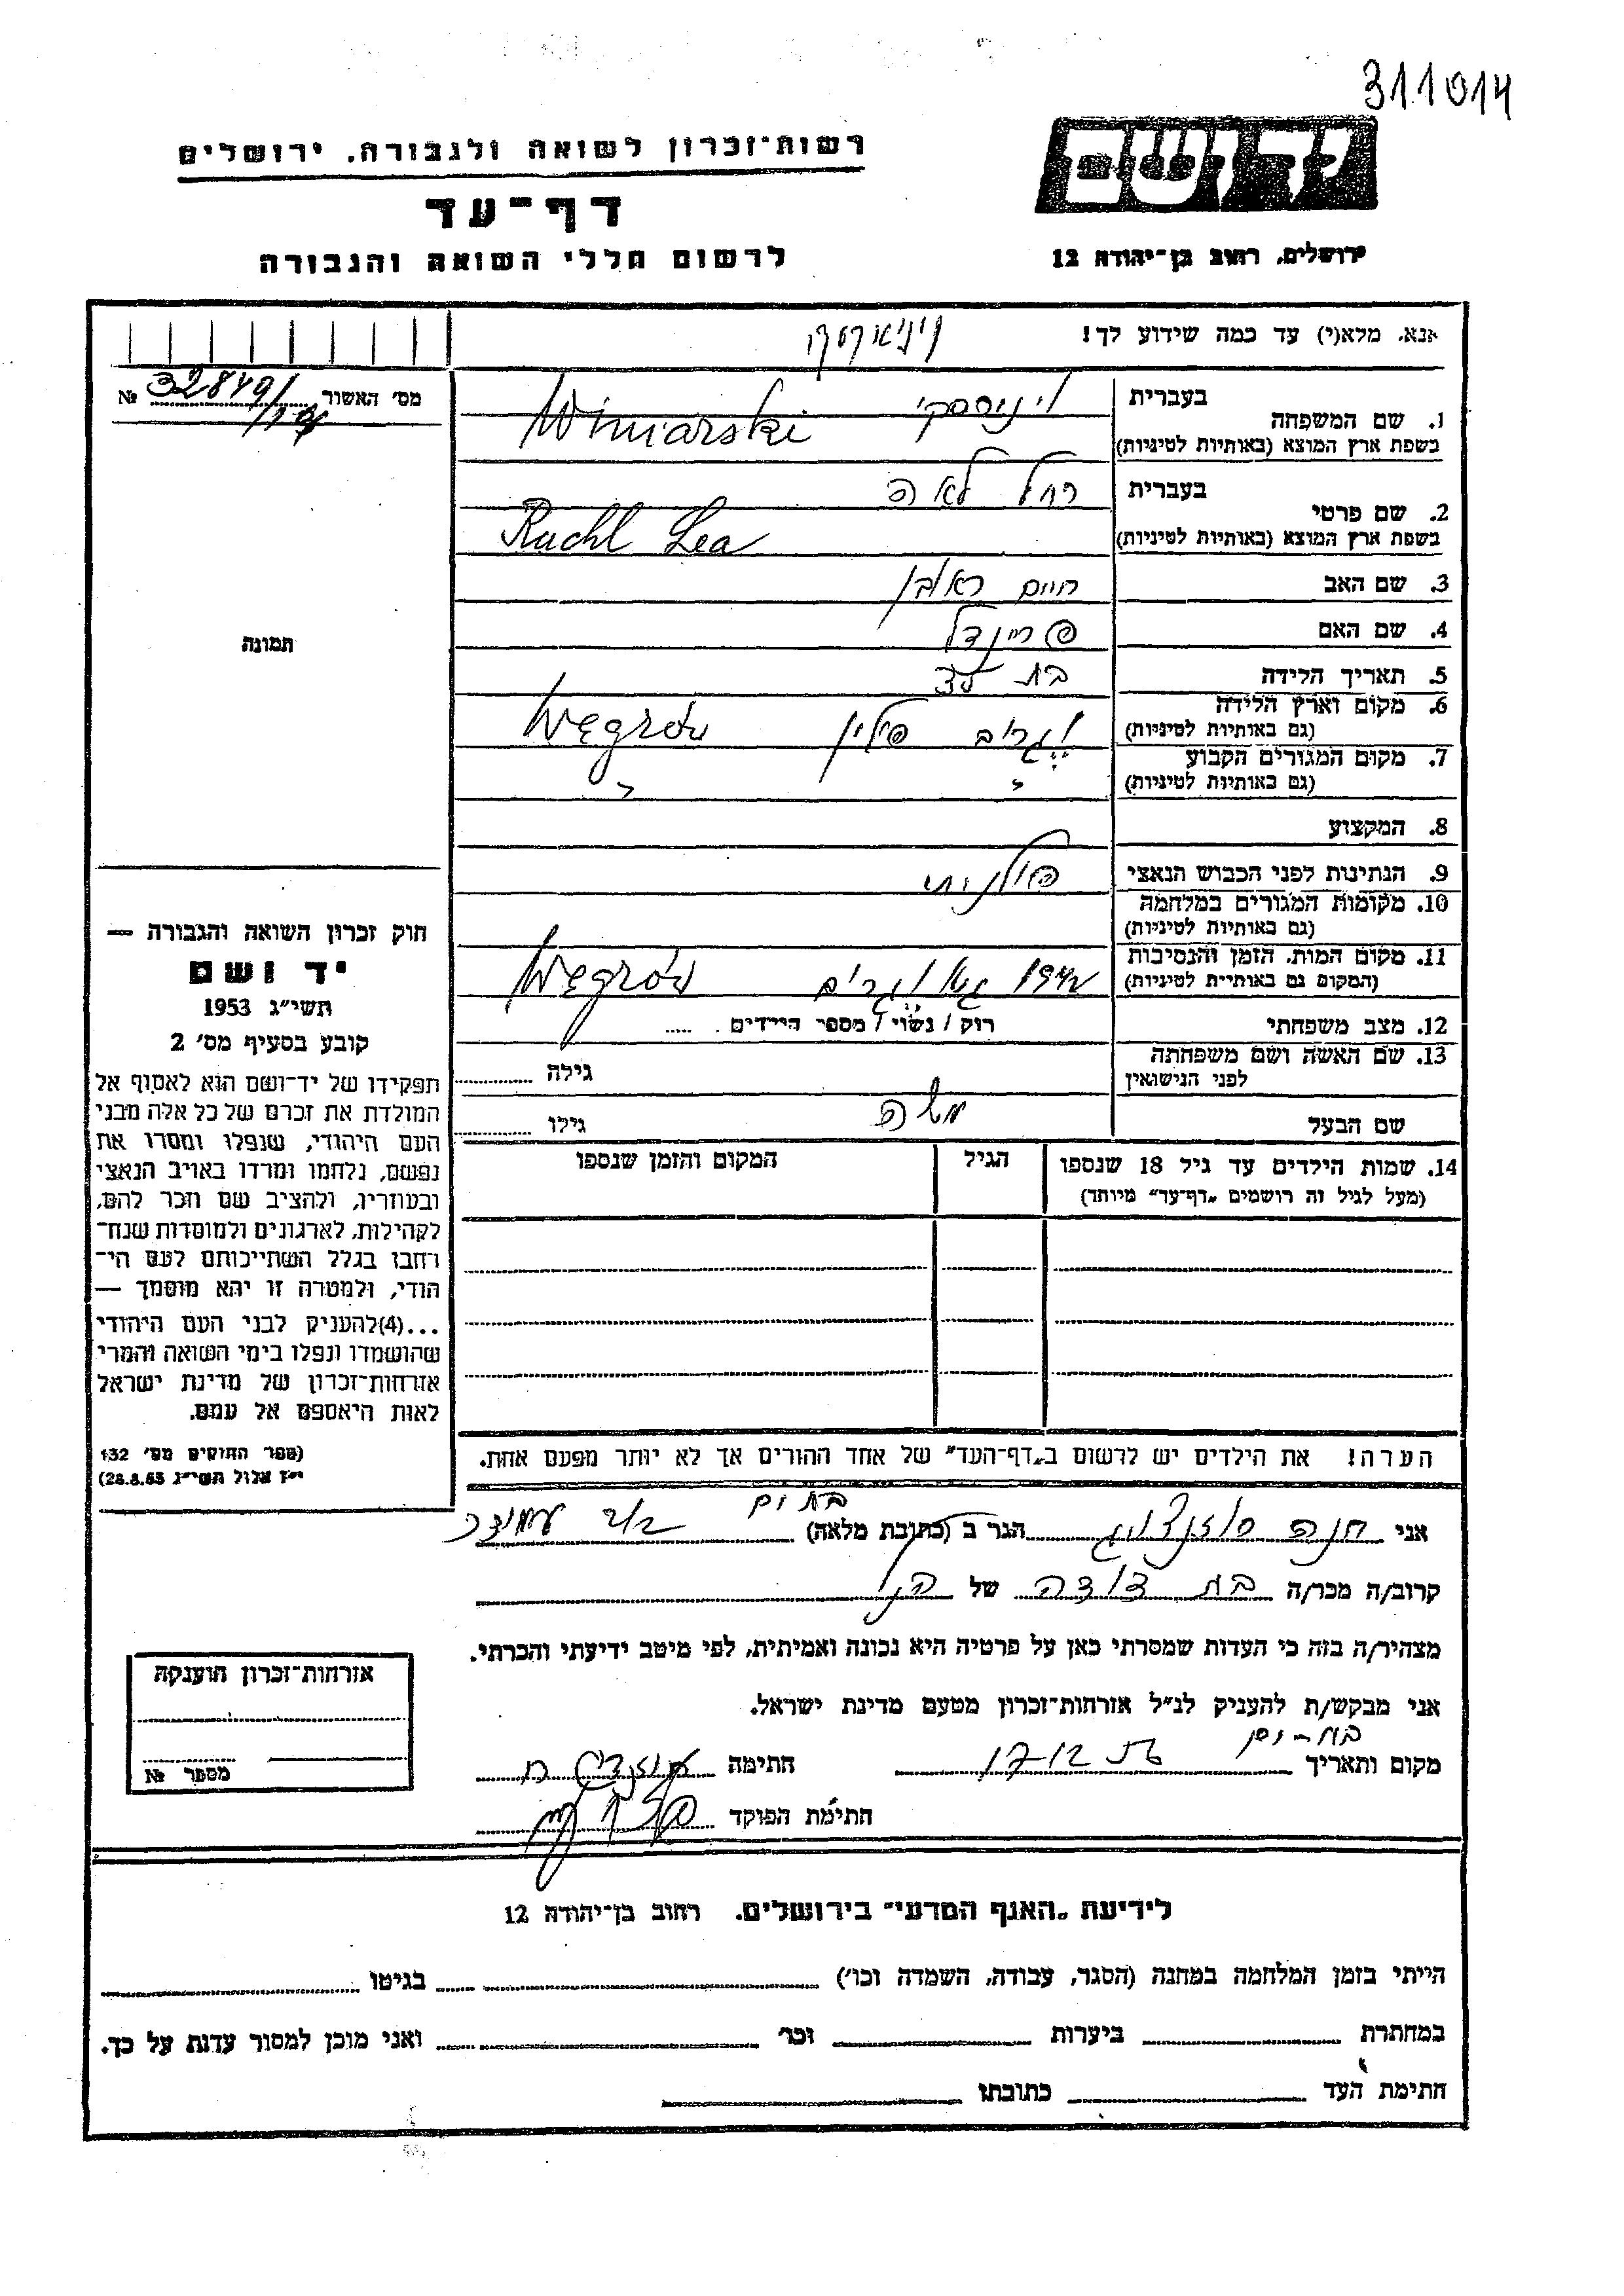 311014
יד ושם
רשות־זכרון לשואה ולגבורה, ירושלים
דף־עד
לרשום חללי השואה והגבורה
ירושלים, רחוב בן־יהודה 12
אנא, מלא(י) עד כמה שידוע לך!
מס׳ האשור 32849/ №
1. שם המשפחה
בעברית
בשפת ארץ המוצא (באותיות לטיניות)
Winiarski
2. שם פרטי
בעברית רחל לאה
בשפת ארץ המוצא (באותיות לטיניות)
Ruchl Lea
3. שם האב חיים ראובן
4. שם האם פריינדל
5. תאריך הלידה בת
6. מקום וארץ הלידה
(גם באותיות לטיניות)
פולין Węgrów
7. מקום המגורים הקבוע
(גם באותיות לטיניות)
8. המקצוע
9. הנתינות לפני הכבוש הנאצי פולנית
10. מקומות המגורים במלחמה
(גם באותיות לטיניות)
11. מקום המות, הזמן והנסיבות
(המקום גם באותיות לטיניות)
1942 Węgrów
12. מצב משפחתי רוק / נשוי / מספר הילדים .....
13. שם האשה ושם משפחתה
לפני הנישואין
גילה
שם הבעל משה גילו
14. שמות הילדים עד גיל 18 שנספו
(מעל לגיל זה רושמים „דף־עד״ מיוחד)
הגיל
המקום והזמן שנספו
הערה! את הילדים יש לרשום ב„דף־העד״ של אחד ההורים אך לא יותר מפעם אחת.
תמונה
חוק זכרון השואה והגבורה —
יד ושם
תשי״ג 1953
קובע בסעיף מס׳ 2
תפקידו של יד־ושם הוא לאסוף אל
המולדת את זכרם של כל אלה מבני
העם היהודי, שנפלו ומסרו את
נפשם, נלחמו ומרדו באויב הנאצי
ובעוזריו, ולהציב שם וזכר להם,
לקהילות, לארגונים ולמוסדות שנח־
רחבו בגלל השתייכותם לעם הי־
הודי, ולמטרה זו יהא מוסמך —
...(4) להעניק לבני העם היהודי
שהושמדו ונפלו בימי השואה והמרי
אזרחות־זכרון של מדינת ישראל
לאות היאספם אל עמם.
(ספר החוקים מס׳ 132
י״ז אלול תשי״ג 28.8.53)
אני חנה הגר ב (כתובת מלאה) בת ים
קרוב/ה מכר/ה בת דודה של הנ״ל
מצהיר/ה בזה כי העדות שמסרתי כאן על פרטיה היא נכונה ואמיתית, לפי מיטב ידיעתי והכרתי.
אני מבקש/ת להעניק לנ״ל אזרחות־זכרון מטעם מדינת ישראל.
מקום ותאריך בת-ים 17-12 חתימה
חתימת הפוקד
אזרחות־זכרון הוענקה
מספר №
לידיעת „האגף המדעי״ בירושלים, רחוב בן־יהודה 12
הייתי בזמן המלחמה במחנה (הסגר, עבודה, השמדה וכו׳) בגיטו
במחתרת ביערות וכו׳ ואני מוכן למסור עדות על כך.
חתימת העד כתובתו